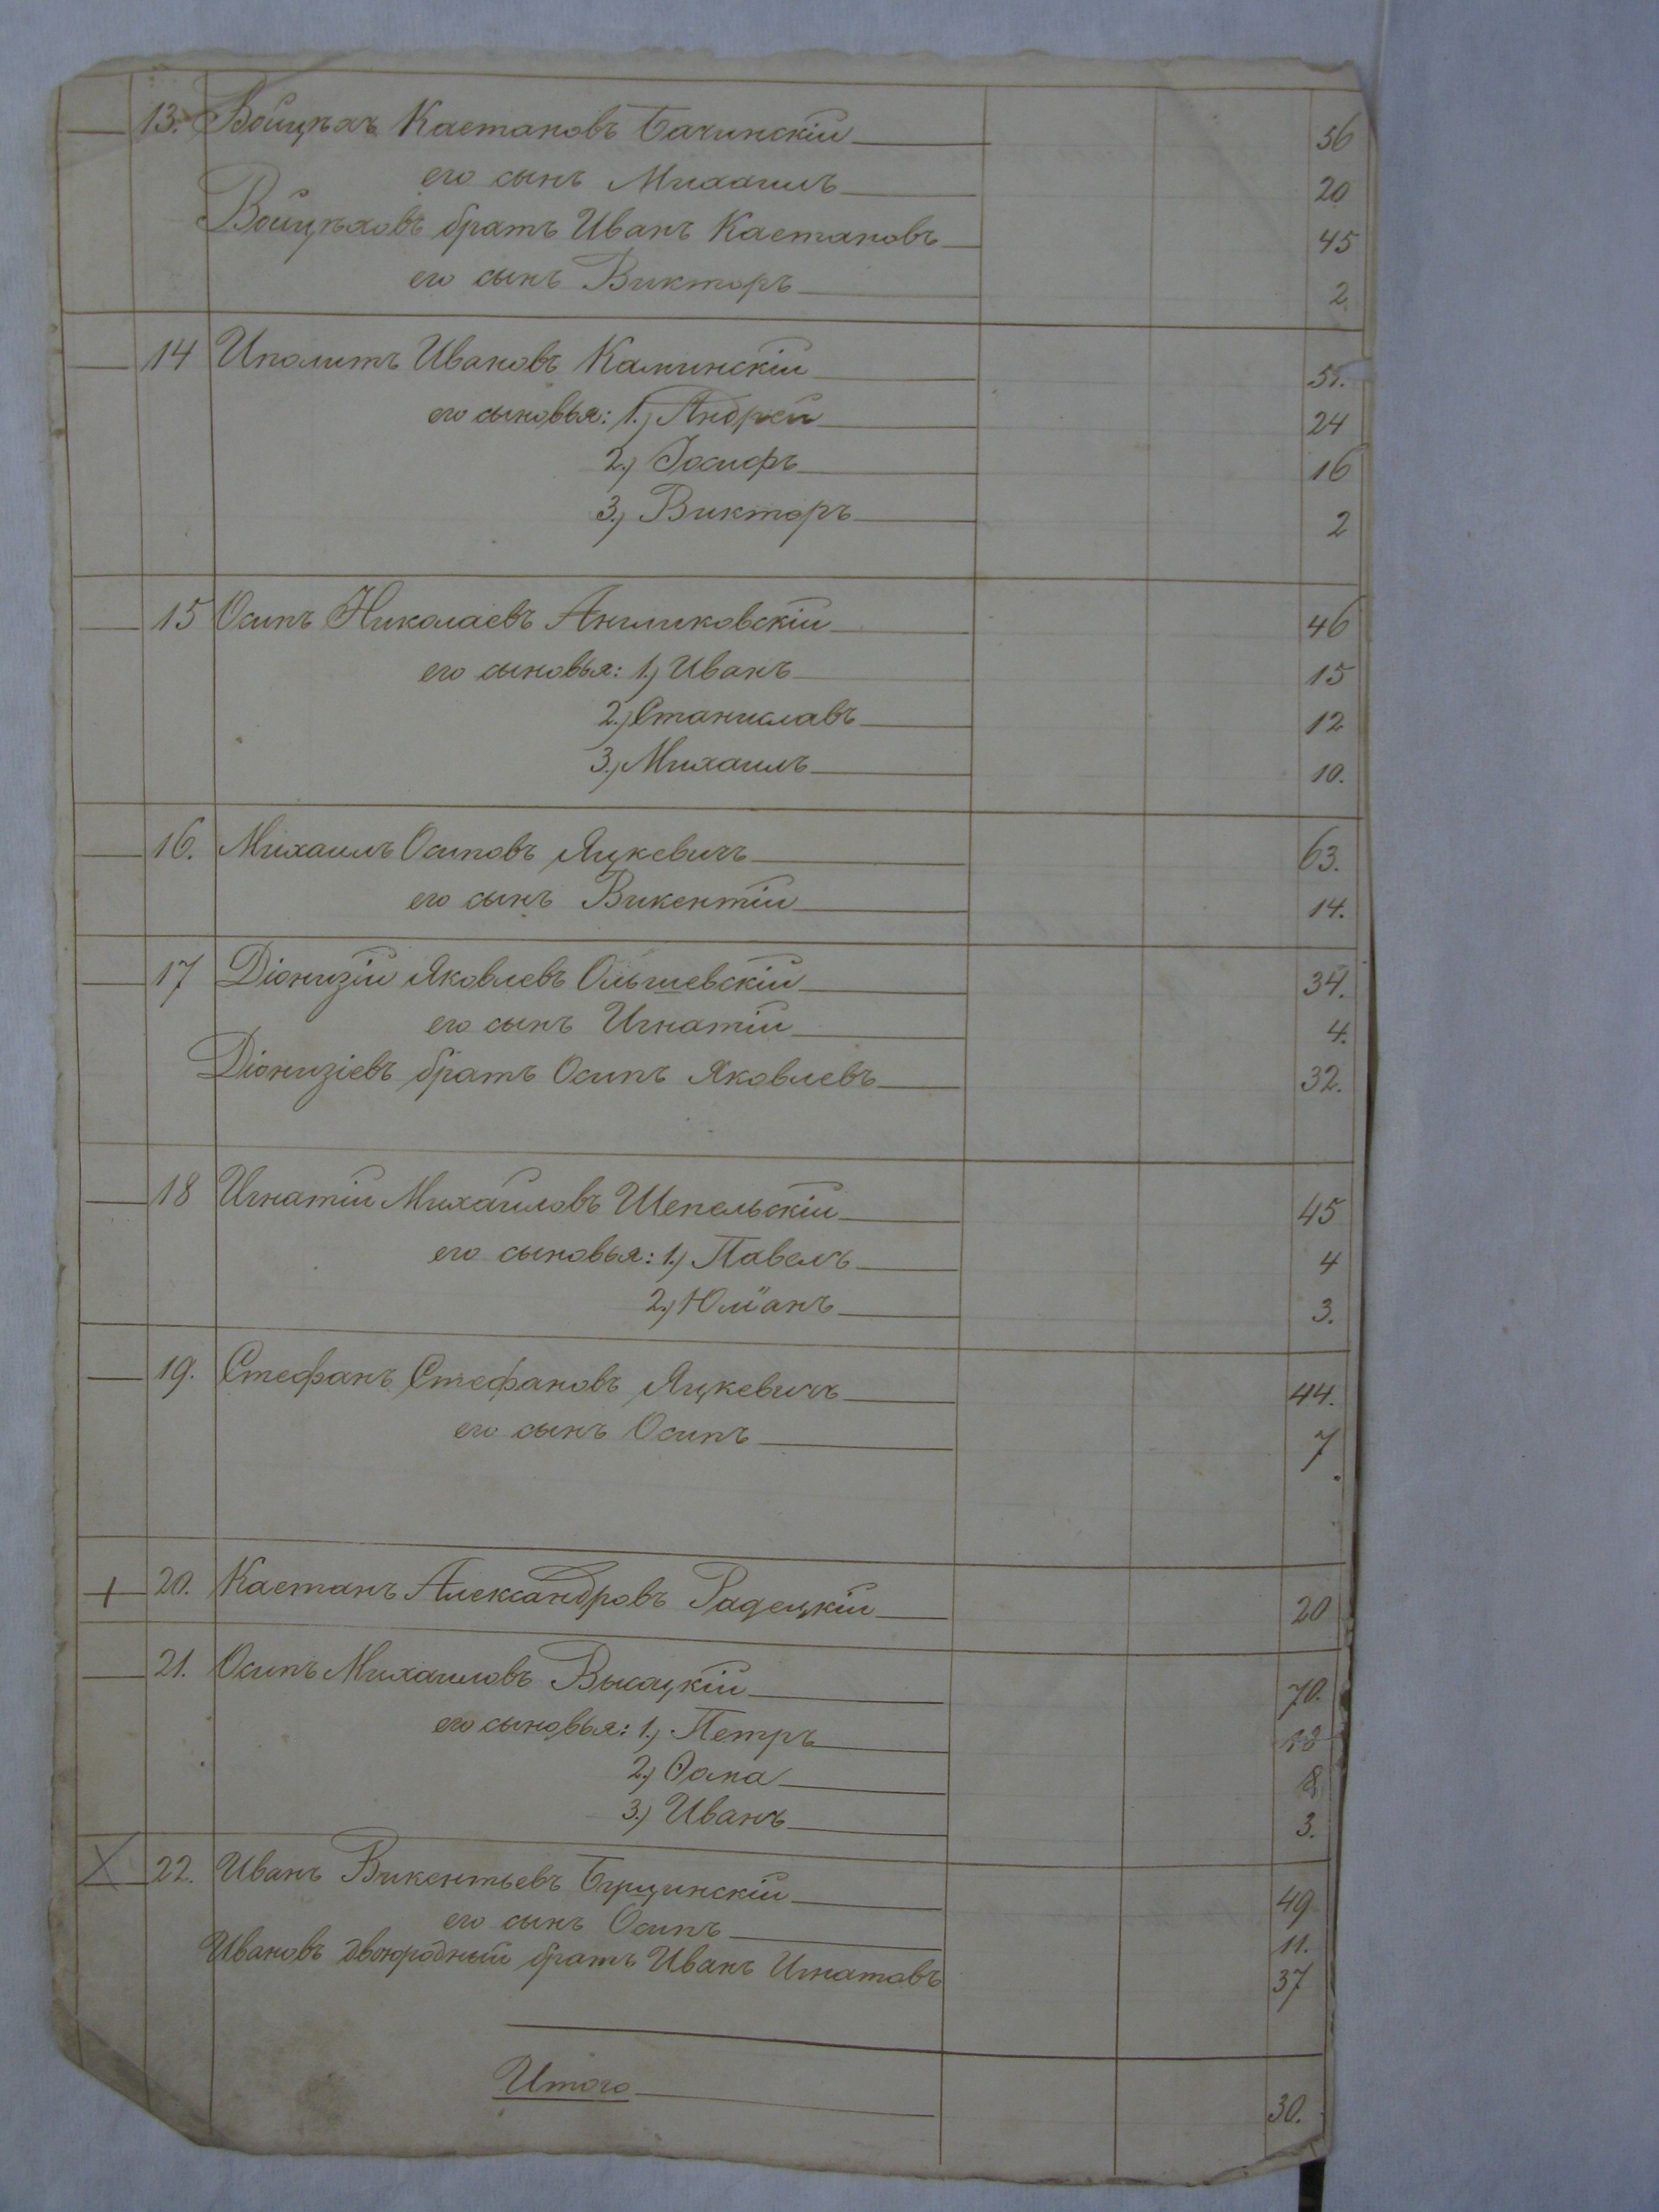 13. Войцѣхъ Каетановъ Бачинскій 56
его сынъ Михаилъ 20
Войцѣховъ братъ Иванъ Каетановъ 45
его сынъ Викторъ 2.
14 Иполитъ Ивановъ Каминскій 51.
его сыновья: 1.) Андрей 24
2.) Іосифъ 16
3.) Викторъ 2
15 Осипъ Николаевъ Анликовскій 46
его сыновья: 1.) Иванъ 15
2.) Станиславъ 12
3.) Михаилъ 10.
16. Михаилъ Осиповъ Яцкевичъ 63.
его сынъ Викентій 14.
17 Діонизій Яковлевъ Ольшевскій 34.
его сынъ Игнатій 4.
Діонизіевъ братъ Осипъ Яковлевъ 32.
18 Игнатій Михайловъ Шепельскій 45
его сыновья: 1.) Павелъ 4
2.) Юліанъ 3.
19. Стефанъ Стефановъ Яцкевичъ 44.
его сынъ Осипъ 7
20. Каетанъ Александровъ Радецкій 20
21. Осипъ Михаиловъ Высоцкій 70.
его сыновья: 1.) Петръ
2.) Ѳома 8
3.) Иванъ 3.
22. Иванъ Викентьевъ 49
его сынъ Осипъ 11.
Ивановъ двоюродный братъ Иванъ Игнатовъ 37
Итого 30.